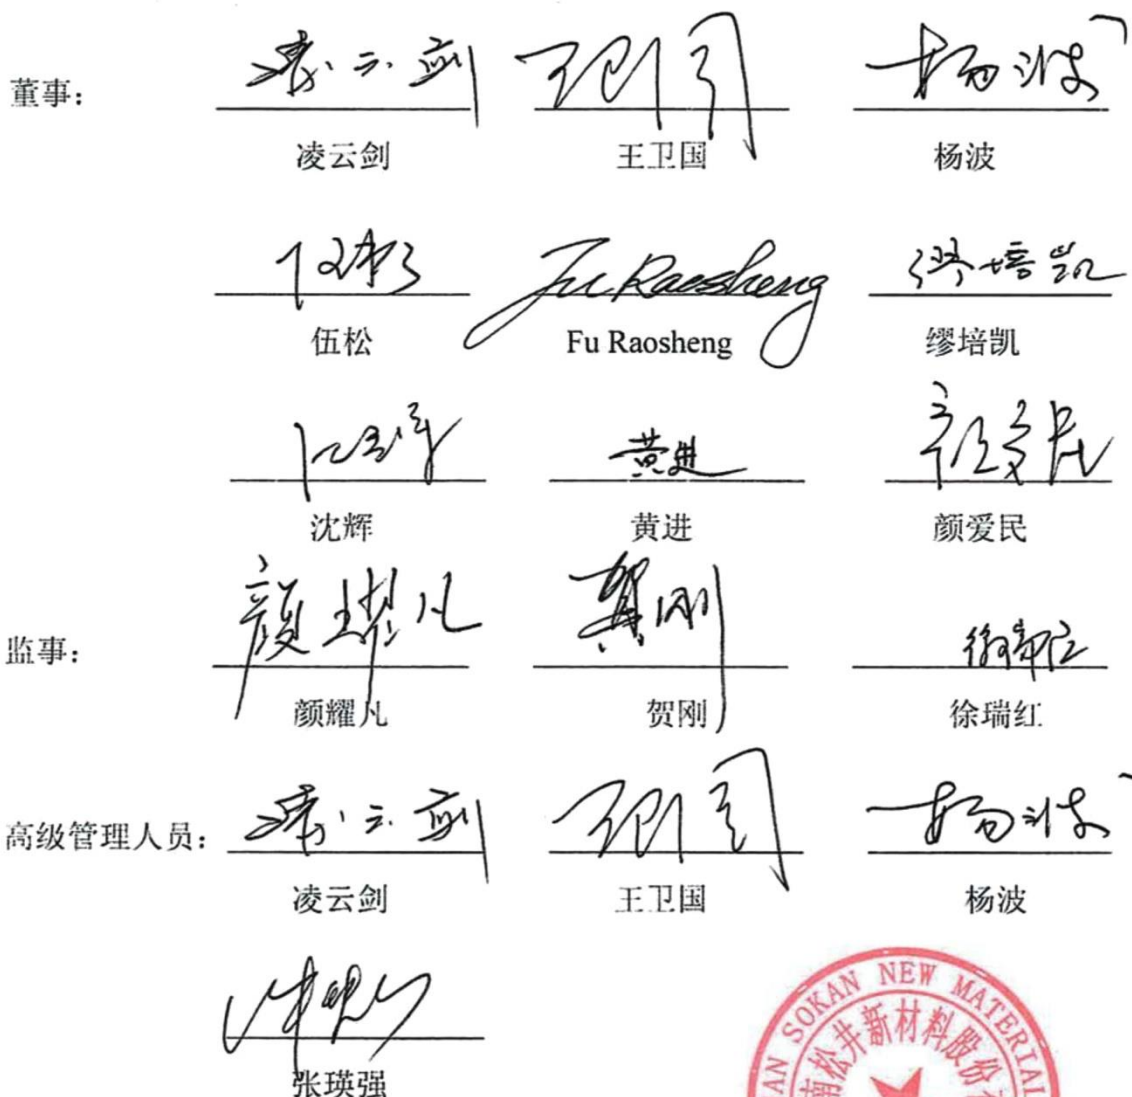 董事：
凌云剑 王卫国 杨波
伍松 Fu Raosheng 缪培凯
沈辉 黄进 颜爱民
监事：
颜耀凡 贺刚 徐瑞红
高级管理人员：
凌云剑 王卫国 杨波
张瑛强
SOKAN NEW MATERIAL
南松井新材料股份